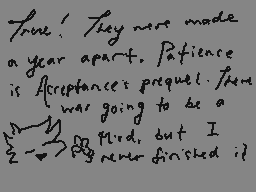 True! They were made
a year apart. Patience
is Acceptance's prequel. There
was going to be a
third, but I
never finished it